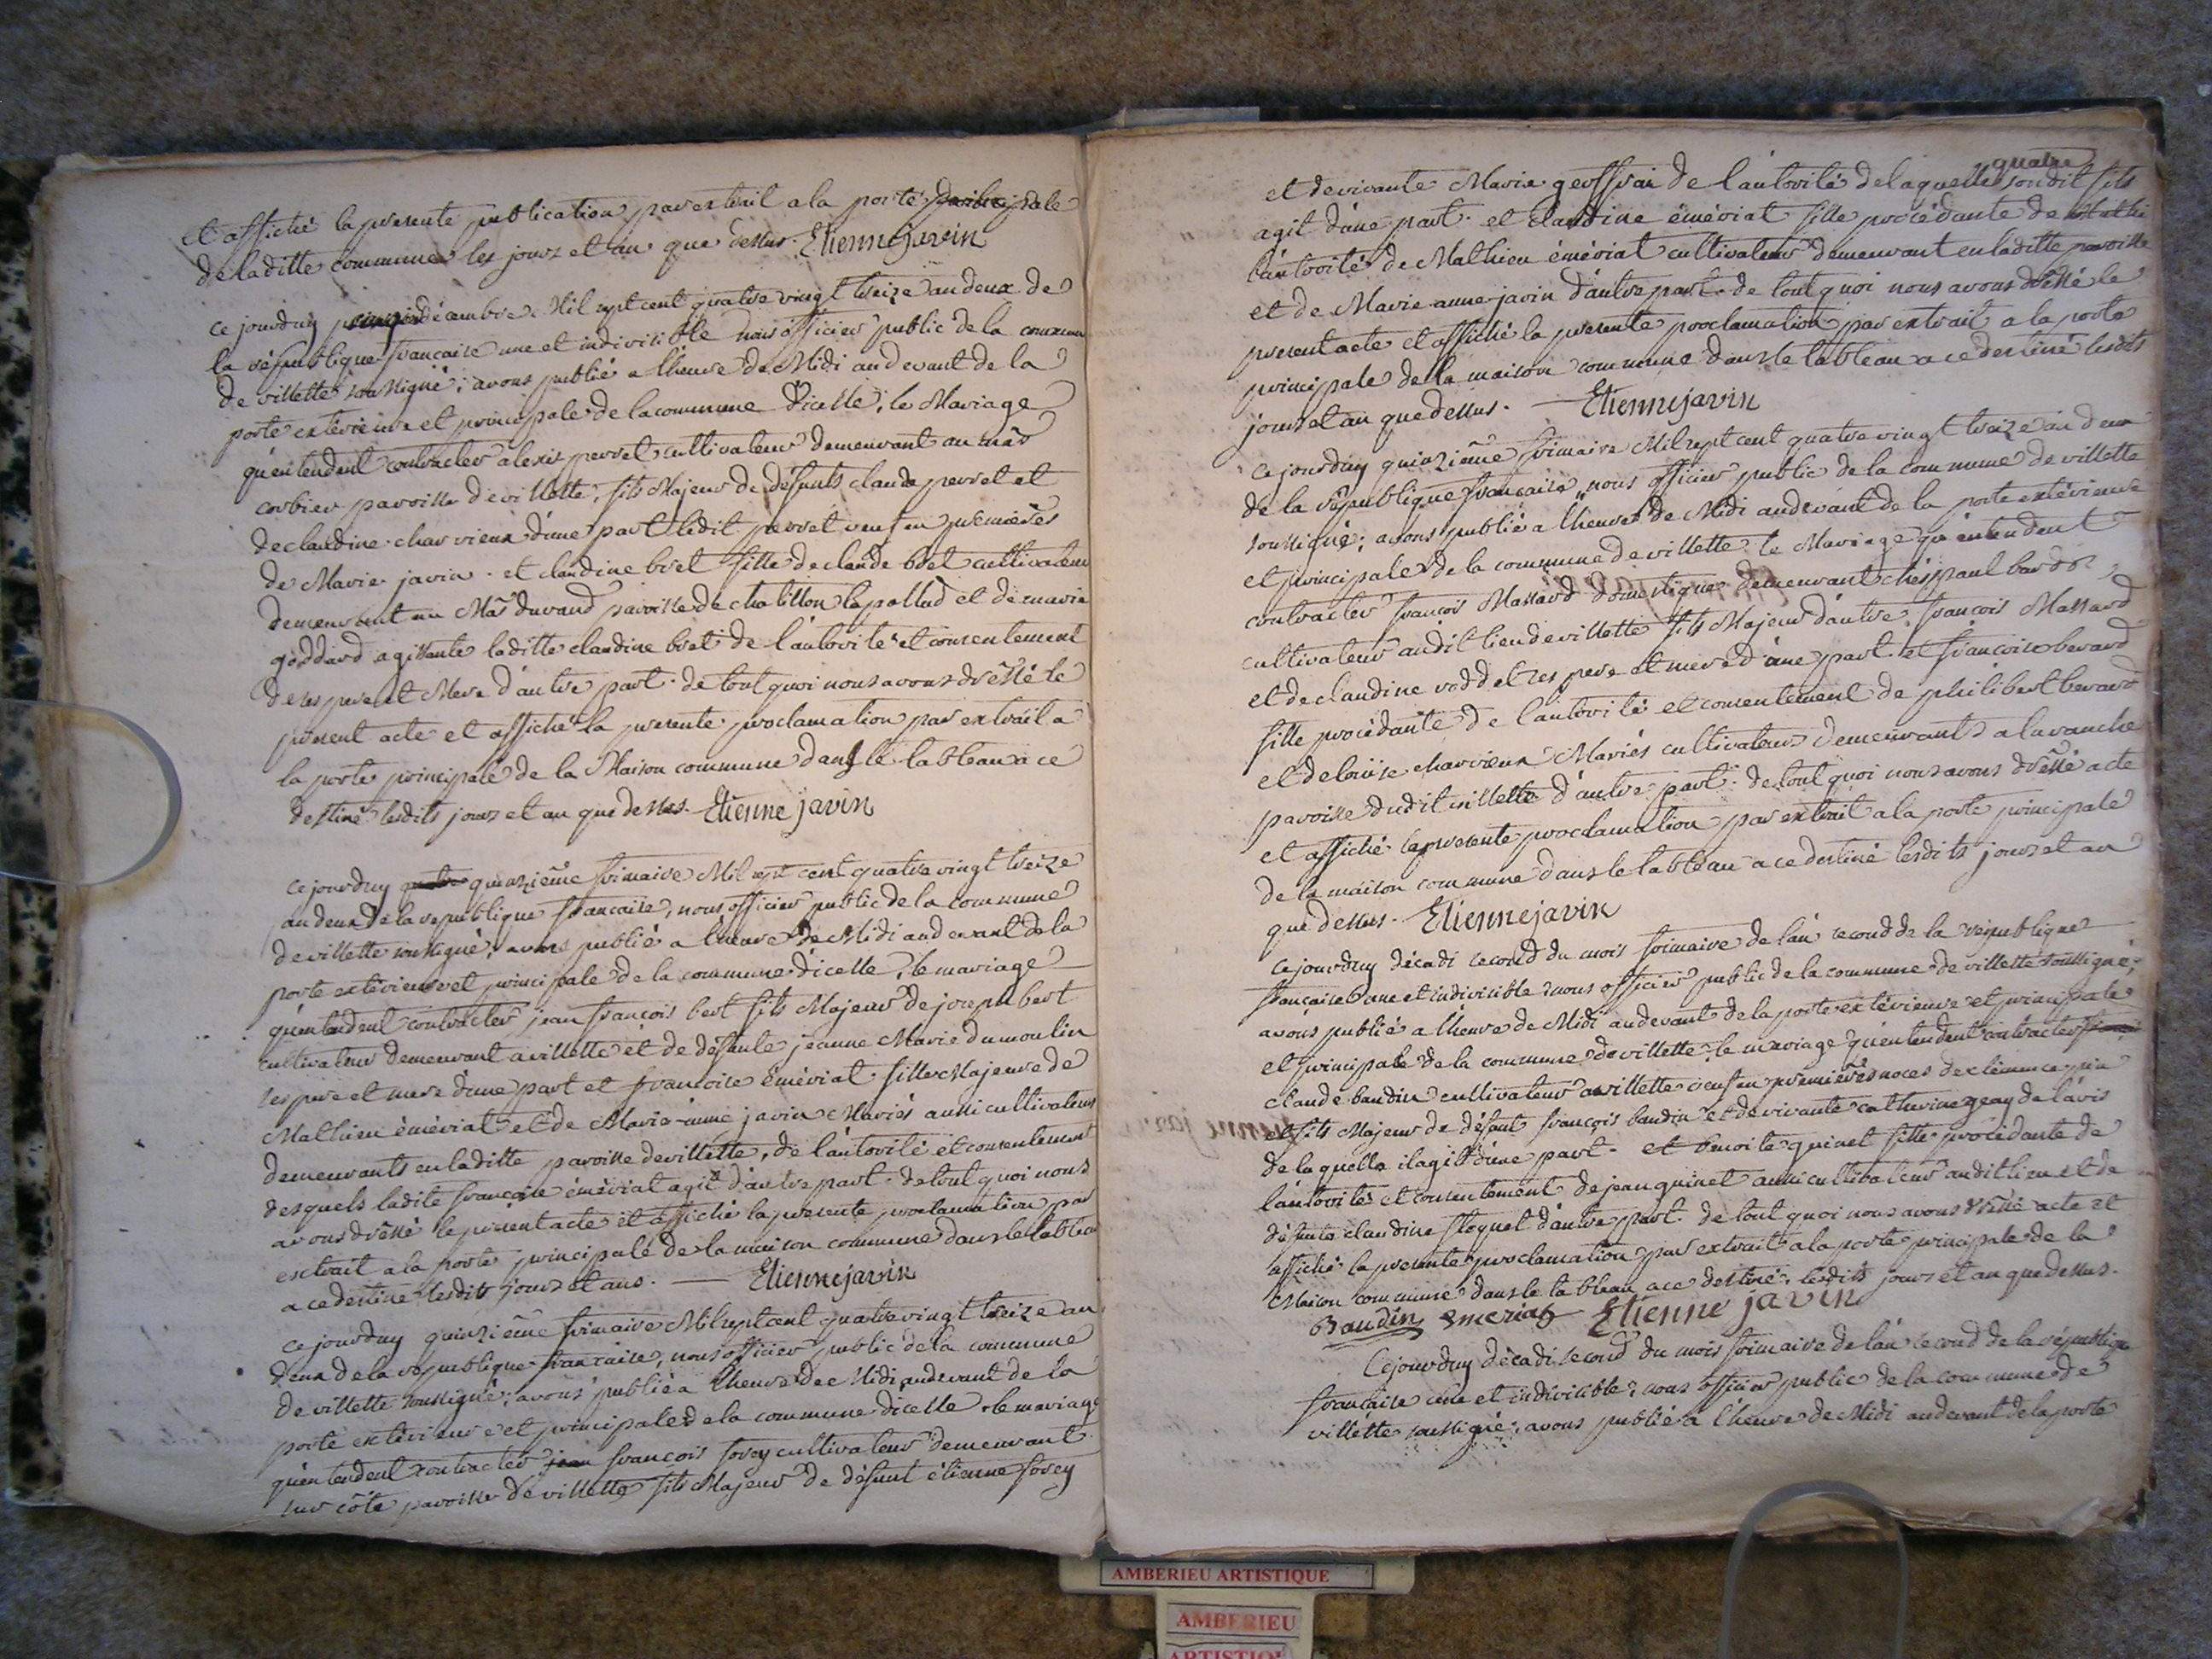 et affiché la presente publication par extrait a la porte principale
de laditte commune les jours et an que dessus. Etienne javin
ce jourduy décembre Mil sept cent quatre vingt treize an deux de
la république francaise une et indivisible nous officier public de la commune
de villette soussigné; avons publié a lheure de Midi au devant de la
porte extérieure et principale de la commune d'icelle; le Mariage
qu'entendent contracter alexis perret cultivateur demeurant au mas
corbier paroisse de villette, fils Majeur de défunts claude perret et
de claudine charvieux d'une part ledit perret veuf en premières
de Marie javin. et claudine bret fille de claude bret cultivateur
demeurant au Mas durand paroisse de chatillon lapallud et de marie
goddard agissante laditte claudine bret de l'autorité et consentement
de ses pere et Mere d'autre part. de tout quoi nous avons dréssé le
present acte et affiché la presente proclamation par extrait a
la porte principale de la Maison commune dans le tableau a ce
destiné lesdits jours et an que dessus. Etienne javin
ce jourduy quinzième frimaire Mil sept cent quatre vingt treize
an deux de la republique francaise, nous officier public de la commune
de villette soussigné; avons publié a lheure de Midi au devant de la
porte extérieure et principale de la commune d'icelle, le mariage
qu'entendent contracter jean françois bert fils Majeur de joseph bert
cultivateur demeurant a villette et de défunte jeanne Marie dumoulin
ses pere et mere d'une part et francoise émériat fille Majeure de
Mathieu émériat et de Marie-anne javin Mariés aussi cultivateurs
demeurants en laditte paroisse de villette, de l'autorité et consentement
desquels ladite françoise émériat agit d'autre part. de tout quoi nous
avons dréssé le present acte et affiché la presente proclamation par
extrait a la porte principale de la maison commune dans le tableau
a ce destiné lesdits jours et ans. — Etienne javin
ce jourduy quinzième frimaire Mil sept cent quatre vingt treize an
deux de la république francaise, nous officier public de la commune
de villette soussigné; avons publié a lheure de Midi au devant de la
porte extérieure et principale de la commune d'icelle le mariage
qu'entendent contracter jean françois forey cultivateur demeurant
sur côte paroisse de villette fils Majeur de défunt étienne forey
quatre
et de vivante Marie geoffrai de l'autorité de laquelle sondit fils
agit d'une part. et claudine émériat fille procédante de
l'autorité de Mathieu émériat cultivateur demeurant en laditte paroisse
et de Marie-anne javin d'autre part. de tout quoi nous avons dréssé le
present acte et affiché la presente proclamation par extrait a la porte
principale de la maison commune dans le tableau a ce destiné lesdits
jours et an que dessus. — Etienne javin
ce jourduy quinzième frimaire Mil sept cent quatre vingt treize an deux
de la république francaise nous officier public de la commune de villette
soussigné; avons publié a lheure de Midi au devant de la porte extérieure
et principale de la commune de villette le Mariage qu'entendent
contracter françois Massard domestique demeurant chés paul bardor
cultivateur audit lieu de villette fils Majeur d'autre françois Massard
et de claudine vaddel ses pere et mere d'une part. et françoise berard
fille procédante de l'autorité et consentement de philibert berard
et de louise charvieux Mariés cultivateurs demeurants a la vranche
paroisse dudit villette d'autre part. de tout quoi nous avons dréssé acte
et affiché la presente proclamation par extrait a la porte principale
de la maison commune dans le tableau a ce destiné lesdits jours et an
que dessus. Etienne javin
ce jourduy décadi second du mois frimaire de l'an second de la république
française une et indivisible nous officier public de la commune de villette soussigné;
avons publié a lheure de Midi au devant de la porte extérieure et principale
et principale de la commune de villette, le mariage qu'entendent contracter
claude baudin cultivateur a villette veuf en premières noces de clémence
et fils Majeur de défunt françois baudin et de vivante catherine geay de l'avis
de laquelle il agit d'une part. et benoite quinet fille procédante de
l'autorité et consentement de jean quinet aussi cultivateur audit lieu et de
défunte claudine floquet d'autre part. de tout quoi nous avons dréssé acte et
affiché la presente proclamation par extrait a la porte principale de la
Maison commune dans le tableau a ce destiné; lesdits jours et an que dessus.
Baudin emeriat Etienne javin
Ce jourduy décadi second du mois frimaire de l'an second de la république
française une et indivisible; nous officier public de la commune de
villette soussigné; avons publié a lheure de Midi au devant de la porte
AMBERIEU ARTISTIQUE
AMBERIEU
ARTISTIQUE